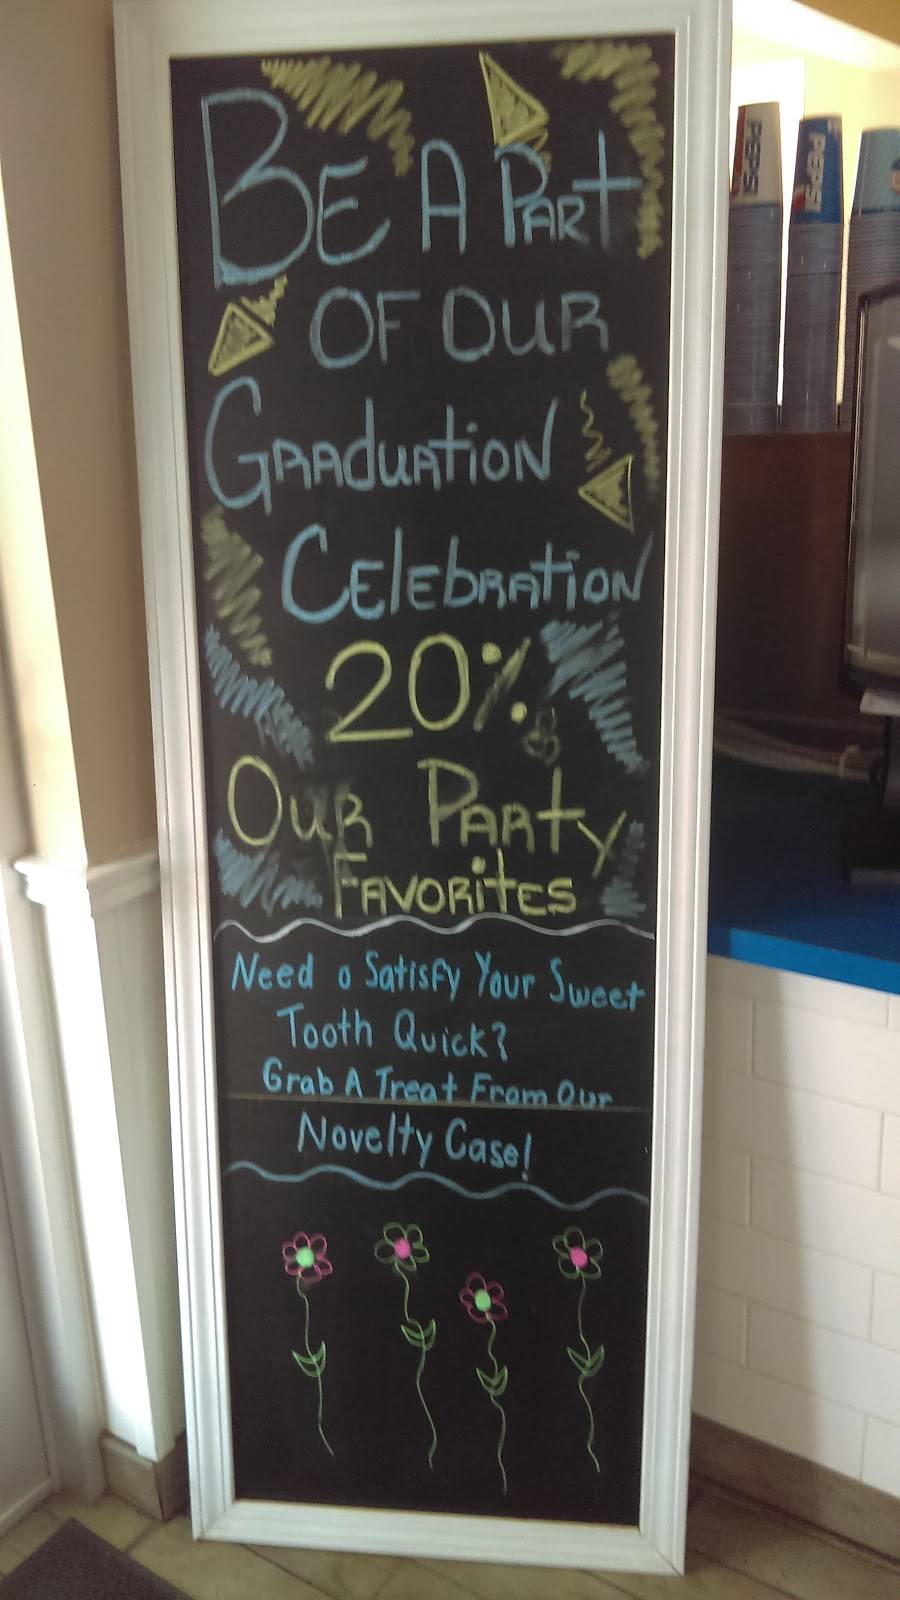 BE A PART
OF OUR
GRADUATION
CELEBRATION
20%
OUR PARTY
FAVORITES
Need o Satisfy Your Sweet
Tooth Quick?
Grab A Treat From Our
Novelty Case!
PEPSI
PEPSI